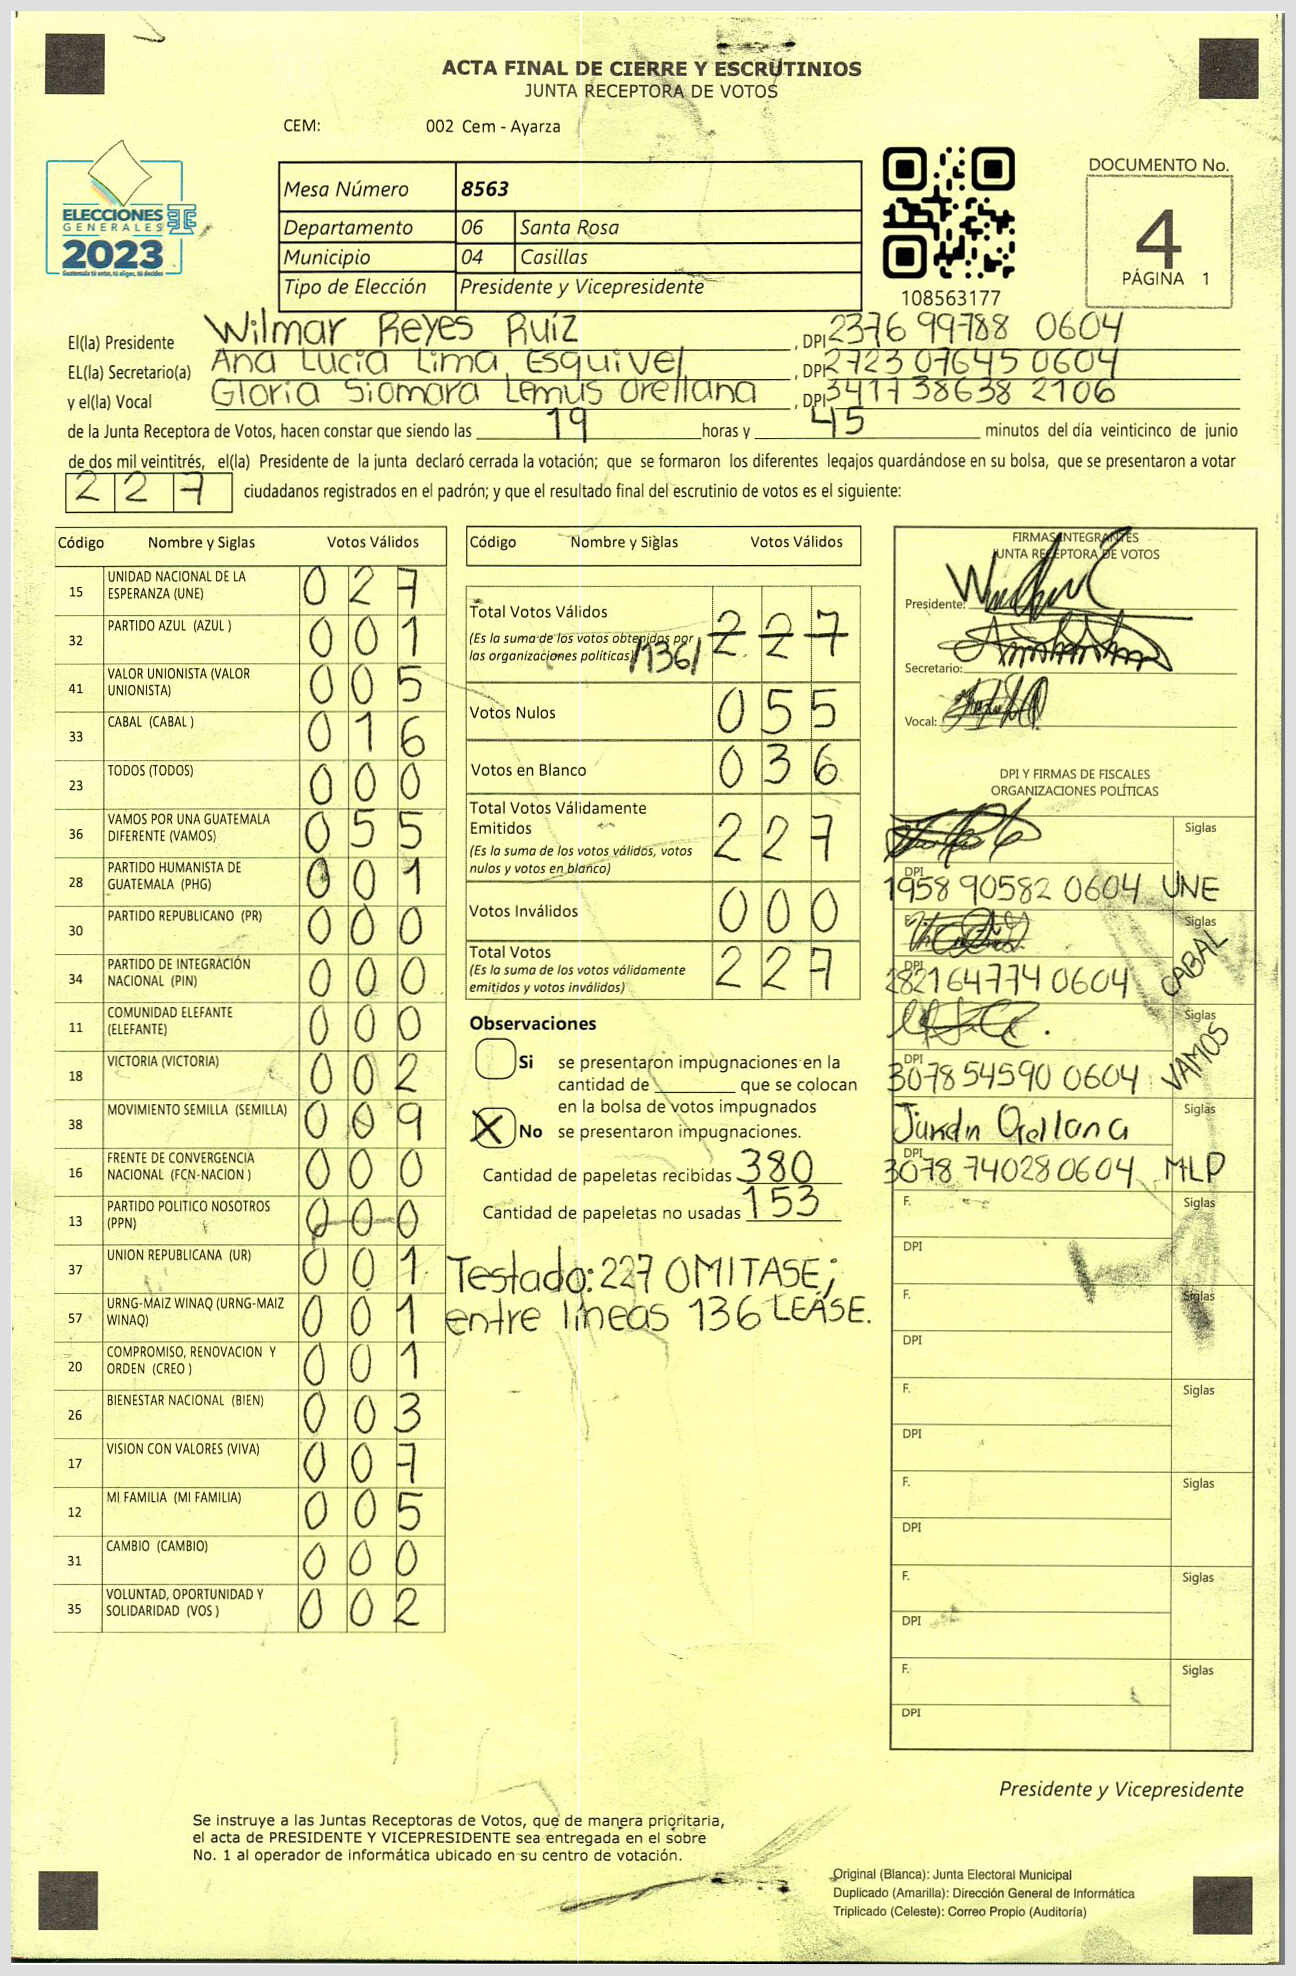 ACTA FINAL DE CIERRE Y ESCRUTINIOS
JUNTA RECEPTORA DE VOTOS
CEM: 002 Cem - Ayarza
ELECCIONES
GENERALES
2023
Mesa Número 8563
Departamento 06 Santa Rosa
Municipio 04 Casillas
Tipo de Elección Presidente y Vicepresidente
108563177
DOCUMENTO No.
4
PÁGINA 1
El(la) Presidente Wilmar Reyes Ruíz, DPI 2376 99788 0604
EL(la) Secretario(a) Ana Lucía Lima Esquivel, DPI 2723 07645 0604
y el(la) Vocal Gloria Siomara Lemus Orellana, DPI 3417 38638 2106
de la Junta Receptora de Votos, hacen constar que siendo las 19 horas y 45 minutos del día veinticinco de junio
de dos mil veintitrés, el(la) Presidente de la junta declaró cerrada la votación; que se formaron los diferentes legajos guardándose en su bolsa, que se presentaron a votar
227 ciudadanos registrados en el padrón; y que el resultado final del escrutinio de votos es el siguiente:
Código Nombre y Siglas Votos Válidos
15 UNIDAD NACIONAL DE LA ESPERANZA (UNE) 027
32 PARTIDO AZUL (AZUL ) 001
41 VALOR UNIONISTA (VALOR UNIONISTA) 005
33 CABAL (CABAL ) 016
23 TODOS (TODOS) 000
36 VAMOS POR UNA GUATEMALA DIFERENTE (VAMOS) 055
28 PARTIDO HUMANISTA DE GUATEMALA (PHG) 001
30 PARTIDO REPUBLICANO (PR) 000
34 PARTIDO DE INTEGRACIÓN NACIONAL (PIN) 000
11 COMUNIDAD ELEFANTE (ELEFANTE) 000
18 VICTORIA (VICTORIA) 002
38 MOVIMIENTO SEMILLA (SEMILLA) 009
16 FRENTE DE CONVERGENCIA NACIONAL (FCN-NACION ) 000
13 PARTIDO POLITICO NOSOTROS (PPN) 000
37 UNION REPUBLICANA (UR) 001
57 URNG-MAIZ WINAQ (URNG-MAIZ WINAQ) 001
20 COMPROMISO, RENOVACION Y ORDEN (CREO ) 001
26 BIENESTAR NACIONAL (BIEN) 003
17 VISION CON VALORES (VIVA) 007
12 MI FAMILIA (MI FAMILIA) 005
31 CAMBIO (CAMBIO) 000
35 VOLUNTAD, OPORTUNIDAD Y SOLIDARIDAD (VOS ) 002
Código Nombre y Siglas Votos Válidos
Total Votos Válidos 227
(Es la suma de los votos obtenidos por
las organizaciones políticas) /136/
Votos Nulos 055
Votos en Blanco 036
Total Votos Válidamente
Emitidos 227
(Es la suma de los votos válidos, votos
nulos y votos en blanco)
Votos Inválidos 000
Total Votos 227
(Es la suma de los votos válidamente
emitidos y votos inválidos)
Observaciones
Si se presentaron impugnaciones en la
cantidad de ________ que se colocan
en la bolsa de votos impugnados
X No se presentaron impugnaciones.
Cantidad de papeletas recibidas 380
Cantidad de papeletas no usadas 153
Testado: 227 OMITASE;
entre líneas 136 LEASE.
FIRMAS INTEGRANTES
JUNTA RECEPTORA DE VOTOS
Presidente:
Secretario:
Vocal:
DPI Y FIRMAS DE FISCALES
ORGANIZACIONES POLÍTICAS
Siglas
DPI
1958 90582 0604 UNE
F. Siglas
DPI
2821 64774 0604 CABAL
Siglas
DPI
3078 54590 0604 VAMOS
Orellana Siglas
DPI
3078 74028 0604 MLP
F. Siglas
DPI
F. Siglas
DPI
F. Siglas
DPI
F. Siglas
DPI
F. Siglas
DPI
F. Siglas
DPI
Presidente y Vicepresidente
Se instruye a las Juntas Receptoras de Votos, que de manera prioritaria,
el acta de PRESIDENTE Y VICEPRESIDENTE sea entregada en el sobre
No. 1 al operador de informática ubicado en su centro de votación.
Original (Blanca): Junta Electoral Municipal
Duplicado (Amarilla): Dirección General de Informática
Triplicado (Celeste): Correo Propio (Auditoría)